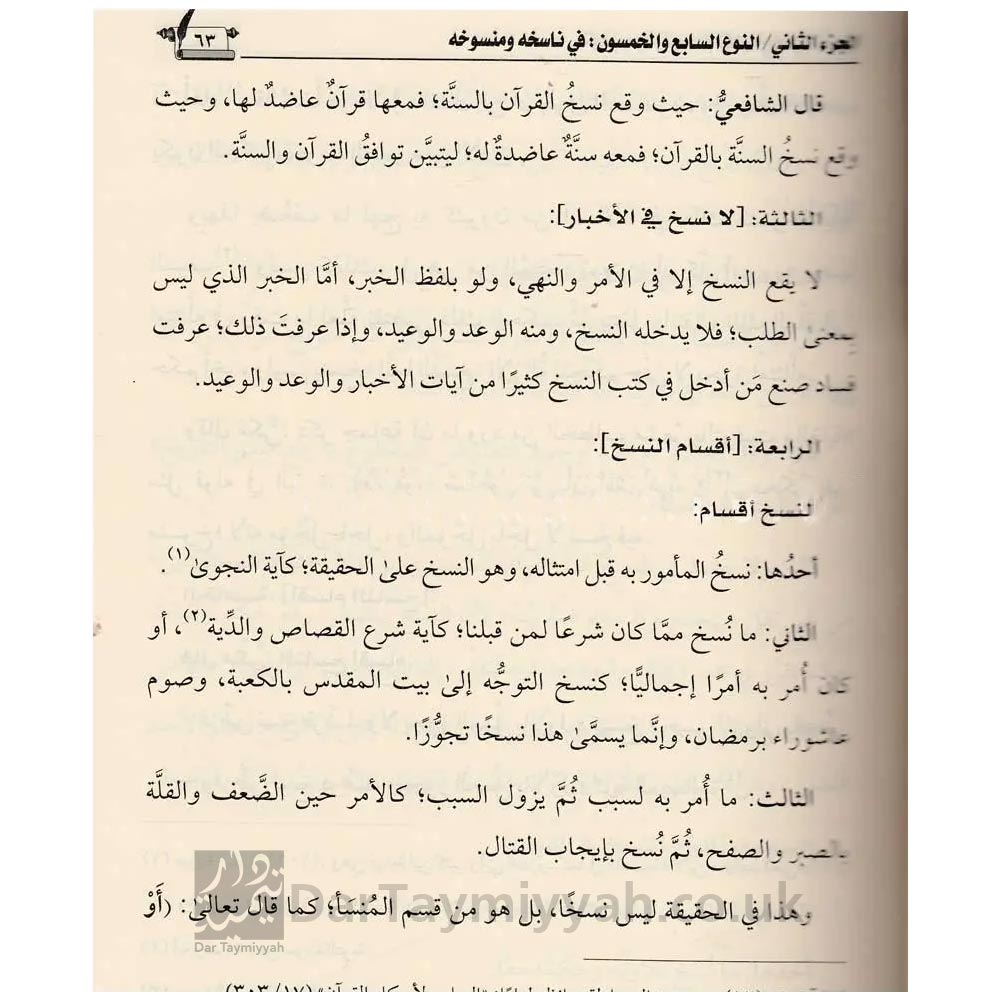 الجزء الثاني/ النوع السابع والخمسون: في ناسخه ومنسوخه
٦٣
قال الشافعيُّ: حيث وقع نسخُ القرآن بالسنَّة؛ فمعها قرآنٌ عاضدٌ لها، وحيث
وقع نسخُ السنَّة بالقرآن؛ فمعه سنَّةٌ عاضدةٌ له؛ ليتبيَّن توافقُ القرآن والسنَّة.
الثالثة: [لا نسخ في الأخبار]:
لا يقع النسخ إلا في الأمر والنهي، ولو بلفظ الخبر، أمَّا الخبر الذي ليس
بمعنىٰ الطلب؛ فلا يدخله النسخ، ومنه الوعد والوعيد، وإذا عرفتَ ذلك؛ عرفت
فساد صنع مَن أدخل في كتب النسخ كثيرًا من آيات الأخبار والوعد والوعيد.
الرابعة: [أقسام النسخ]:
النسخ أقسام:
أحدُها: نسخُ المأمور به قبل امتثاله، وهو النسخ علىٰ الحقيقة؛ كآية النجوىٰ(١).
الثاني: ما نُسخ ممَّا كان شرعًا لمن قبلنا؛ كآية شرع القصاص والدِّية(٢)، أو
كانَ أُمر به أمرًا إجماليًّا؛ كنسخ التوجُّه إلىٰ بيت المقدس بالكعبة، وصوم
عاشوراء برمضان، وإنَّما يسمَّىٰ هذا نسخًا تجوُّزًا.
الثالث: ما أُمر به لسبب ثُمَّ يزول السبب؛ كالأمر حين الضَّعف والقلَّة
بالصبر والصفح، ثُمَّ نُسخ بإيجاب القتال.
وهذا في الحقيقة ليس نسخًا، بل هو من قسم المُنسَأ؛ كما قال تعالىٰ: (أَوْ
DarTaymiyyah.co.uk
Dar Taymiyyah